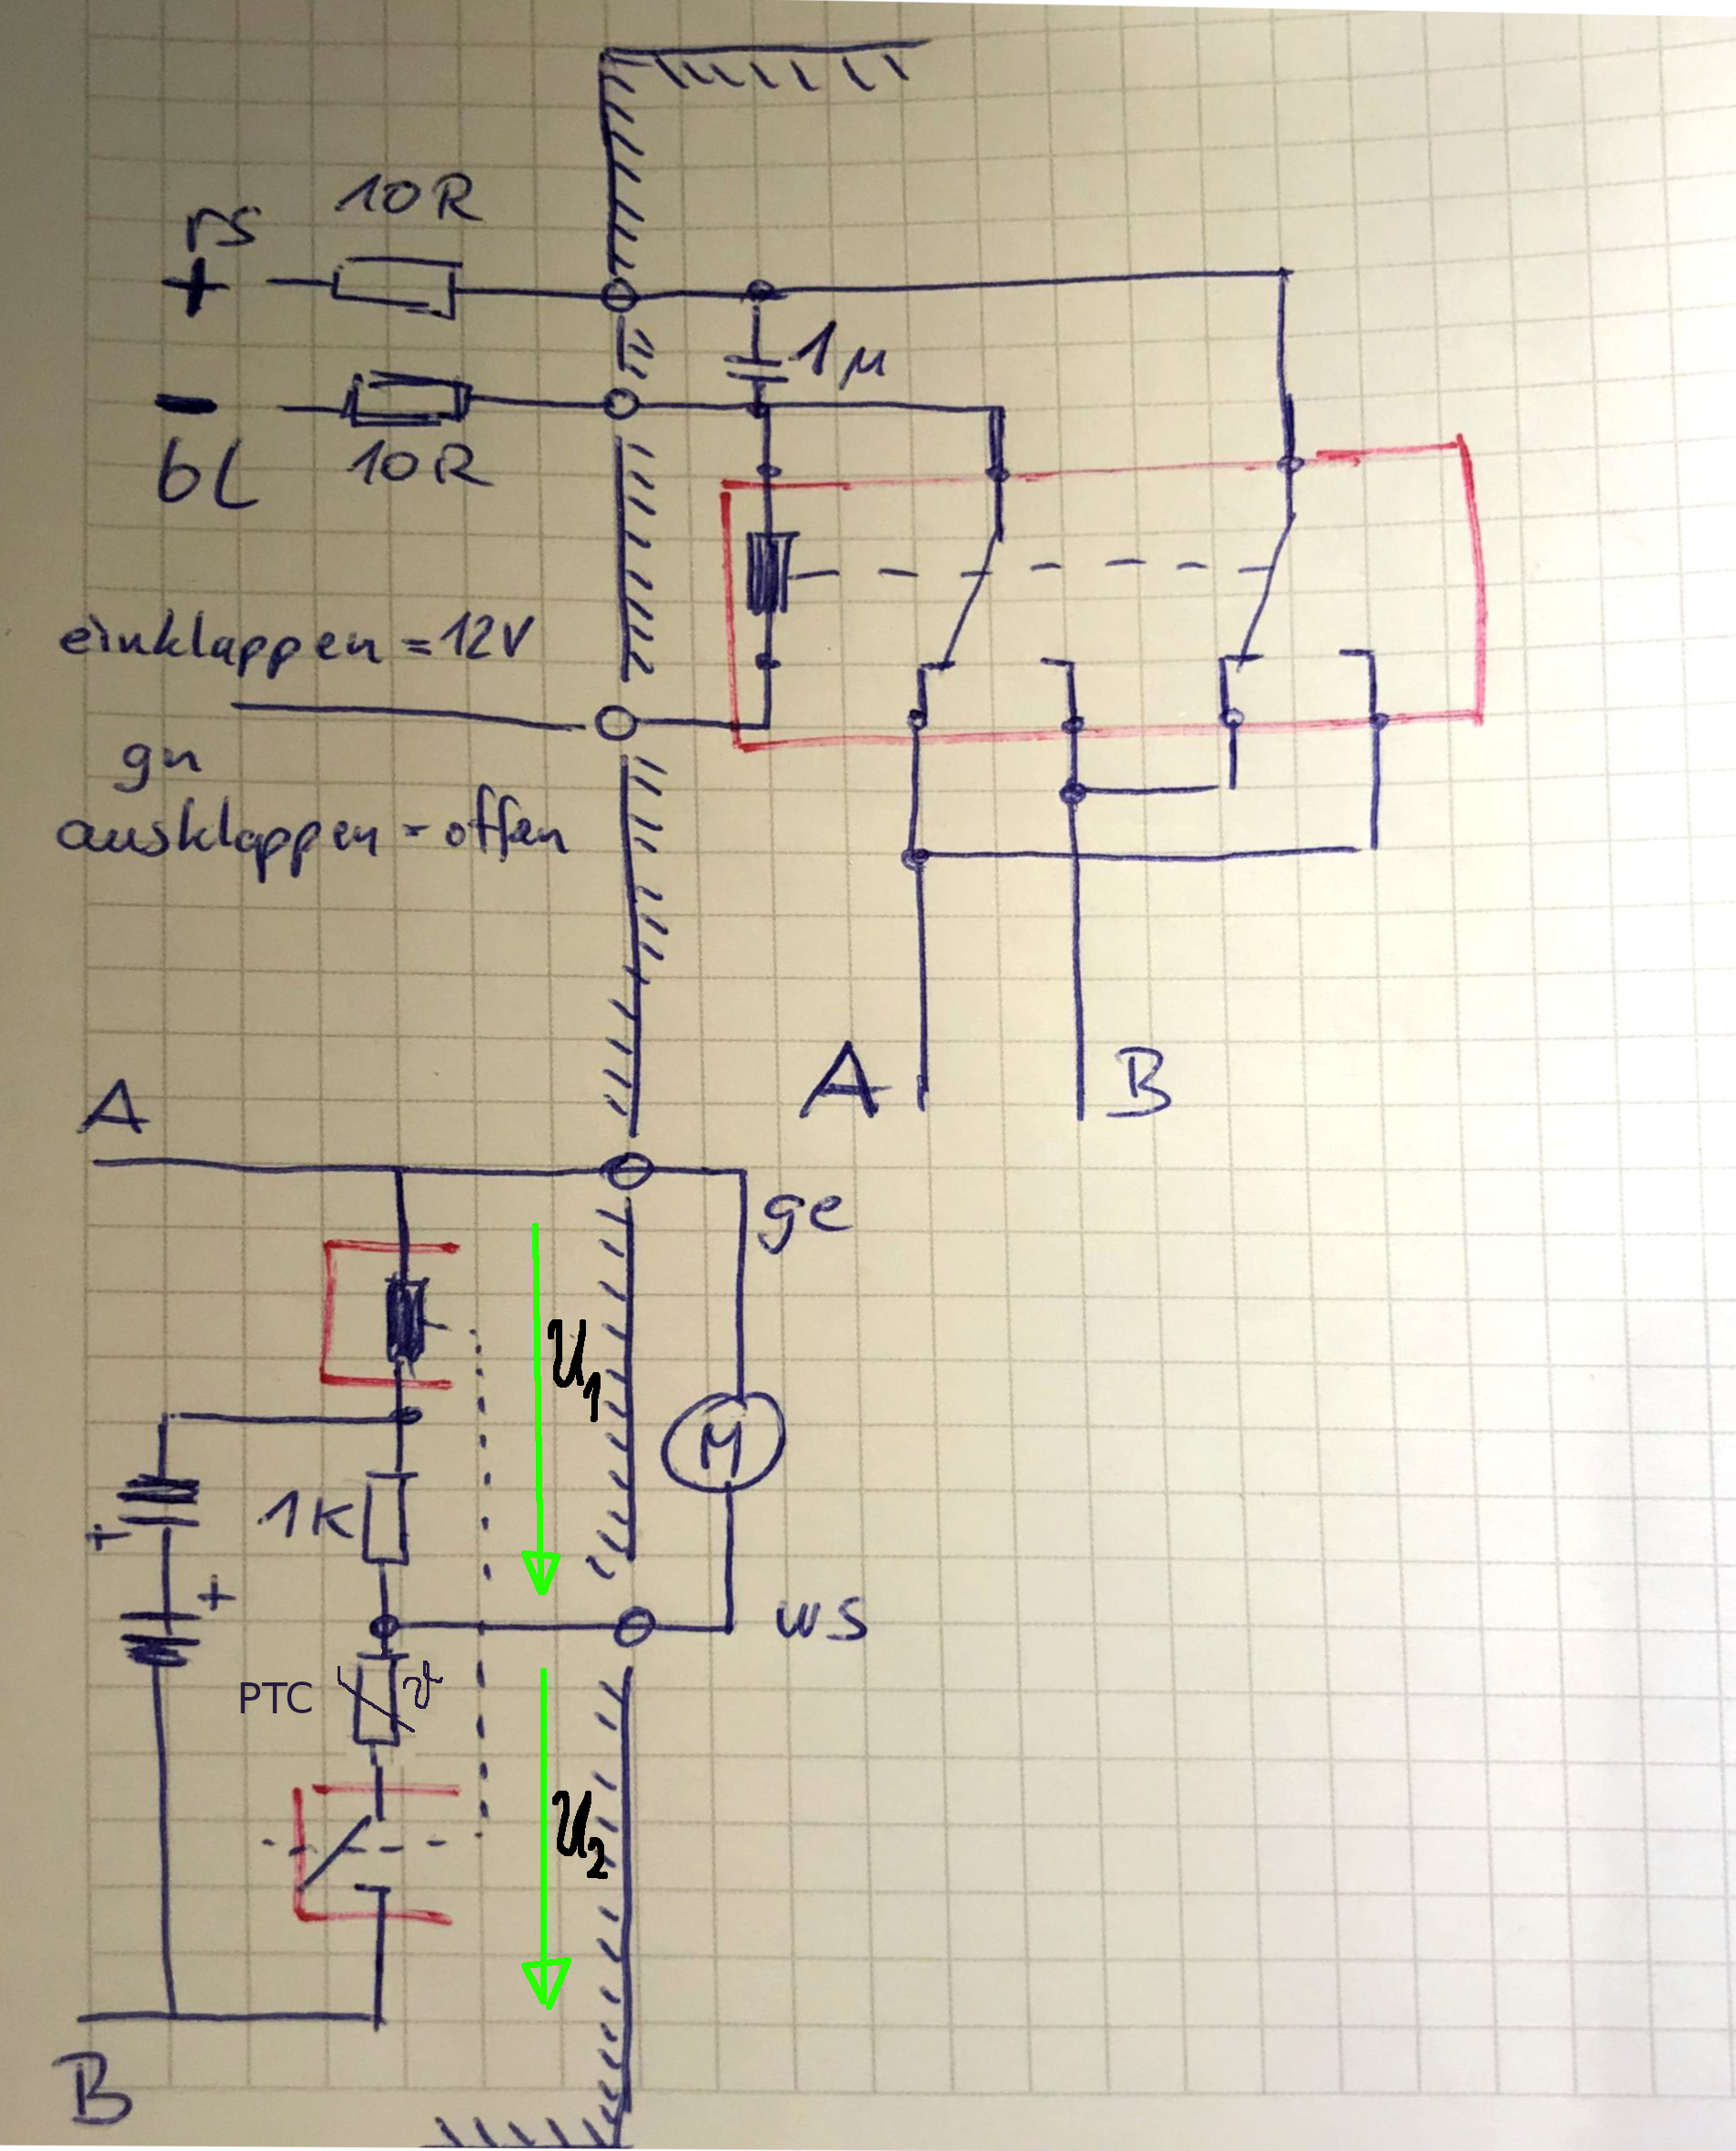 10R
rs
+
1µ
-
bl
10R
einklappen = 12V
gn
ausklappen = offen
A
B
A
ge
U1
M
1K
+
+
ws
PTC ϑ
U2
B